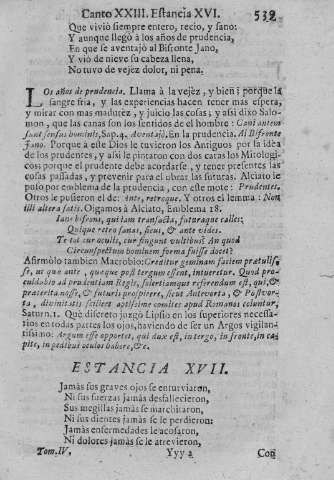 Canto XXIII. Estancia XVI. 539
Que vivió siempre entero, recio, y sano:
Y aunque llegó à los años de prudencia,
En que se aventajó al Bifronte Jano,
Y vió de nieve su cabeza llena,
No tuvo de vejèz dolor, ni pena.
Los años de prudencia. Llama à la vejèz, y bien; porque la
sangre fria, y las experiencias hacen tener mas espera,
y mirar con mas madurèz, y juicio las cosas; y assi dixo Salo-
mon, que las canas son los sentidos de el hombre: Cani autem
sunt sensus hominis, Sap. 4. Aventajó, En la prudencia. Al Bifronte
Jano. Porque à este Dios le tuvieron los Antiguos por la idèa
de los prudentes, y assi le pintaron con dos caras los Mitologi-
cos; porque el prudente debe acordarse, y tener presentes las
cosas passadas, y prevenir para el obrar las futuras. Alciato le
puso por emblema de la prudencia, con este mote: Prudentes.
Otros le pusieron el de: Ante, retroque. Y otros el lemma: Non
illi altera satis. Oigamos à Alciato, Emblema 18.
Iane bifrons, qui iam transacta, futuraque calles;
Quique retro sannas, sicut, & ante vides.
Te tot cur oculis, cur fingunt vultibus? An quod
Circumspectum hominem forma fuisse docet?
Afirmòlo tambien Macrobio: Creditur geminam faciem prætulis-
se, ut que ante, queque post tergum essent, intueretur. Quod pro-
culdubio ad prudentiam Regis, solertiamque referendum est, qui, &
præterita nosset, & futura prospiceret, sicut Antevorta, & Postvor-
ta, divinitatis scilicet aptissime comites apud Romanos coluntur,
Saturn. 1. Què discreto juzgò Lipsio en los superiores necessa-
rios en todas partes los ojos, haviendo de ser un Argos vigilan-
tissimo: Argum esse oportet, qui dux est, in tergo, in fronte, in ca-
pite, in pedibus oculos habere, &c.
ESTANCIA XVII.
Jamàs sus graves ojos se enturviaron,
Ni sus fuerzas jamàs desfallecieron,
Sus megillas jamàs se marchitaron,
Ni sus dientes jamàs se le perdieron:
Jamàs enfermedades le acosaron,
Ni dolores jamàs se le atrevieron,
Tom. IV. Yyy 2 Con